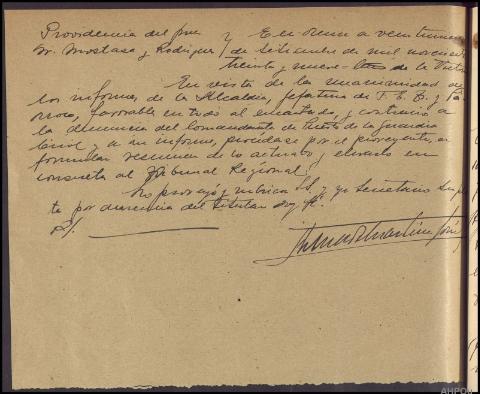 Providencia del Juez
Sr. Mostaza y Rodríguez } En a veintiuno
de Septiembre de mil novecientos
treinta y nueve de la Victoria
En vista de la unanimidad de
los informes de la Alcaldía, Jefatura de F. E. T. y
favorable en todo al encartado, y contrario a
la denuncia del Comandante de Puesto de la Guardia
Civil y a su informe, procédase por el proveyente, a
formular resumen de lo actuado y elevarlo en
consulta al Tribunal Regional.
Lo proveyó y rubrica SS. y yo Secretario
por ausencia del titular doy fe.
AHPOU